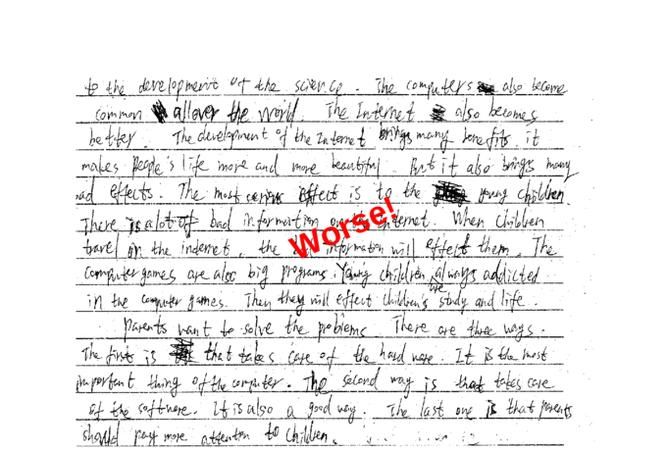 to the development of the science. The computers also become
common allover the world. The Internet also becomes
better. The development of the Internet brings many benefits. it
makes people's life more and more beautiful. But it also brings many
bad effects. The most effect is to the young children
There is a lot of bad information Internet. When children
travel in the internet, the information will effect them. The
computer games are also big programs. Young children are always addicted
in the computer games. Then they will effect children's study and life.
Worse!
Parents want to solve the problems There are three ways.
The first is that takes care of the hard ware. It is the most
important thing of the computer. The second way is that takes care
of the software. It is also a good way. The last one is that parents
should pay more attention to children.